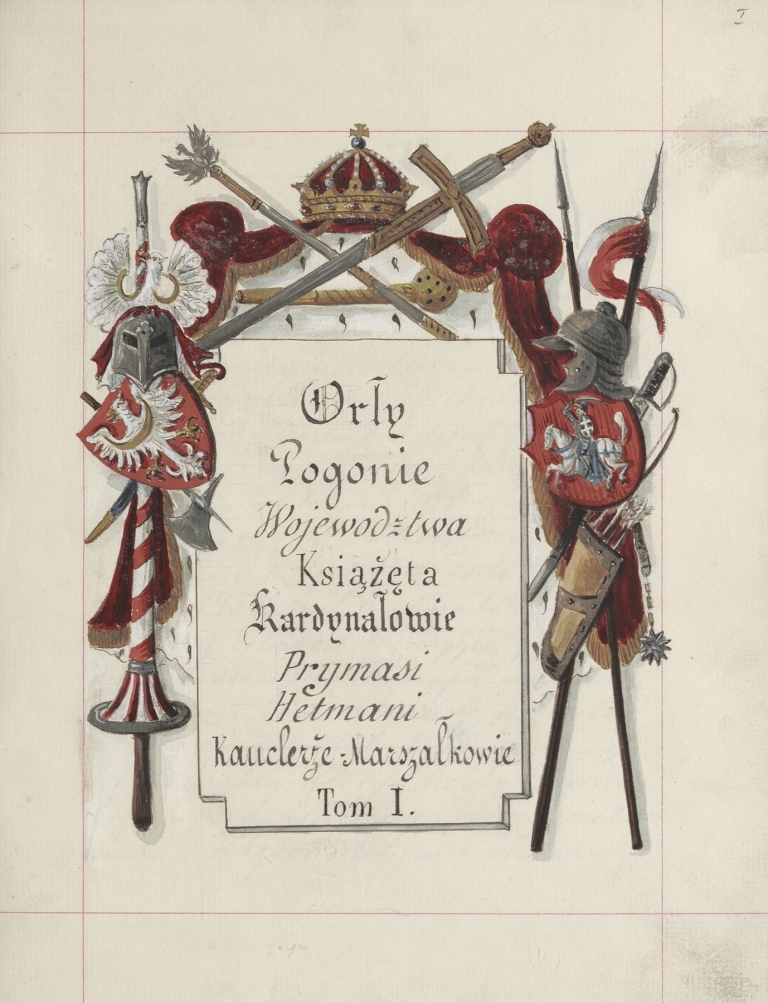 I
Orły
Pogonie
Województwa
Książęta
Kardynałowie
Prymasi
Hetmani
Kanclerze-Marszałkowie
Tom I.